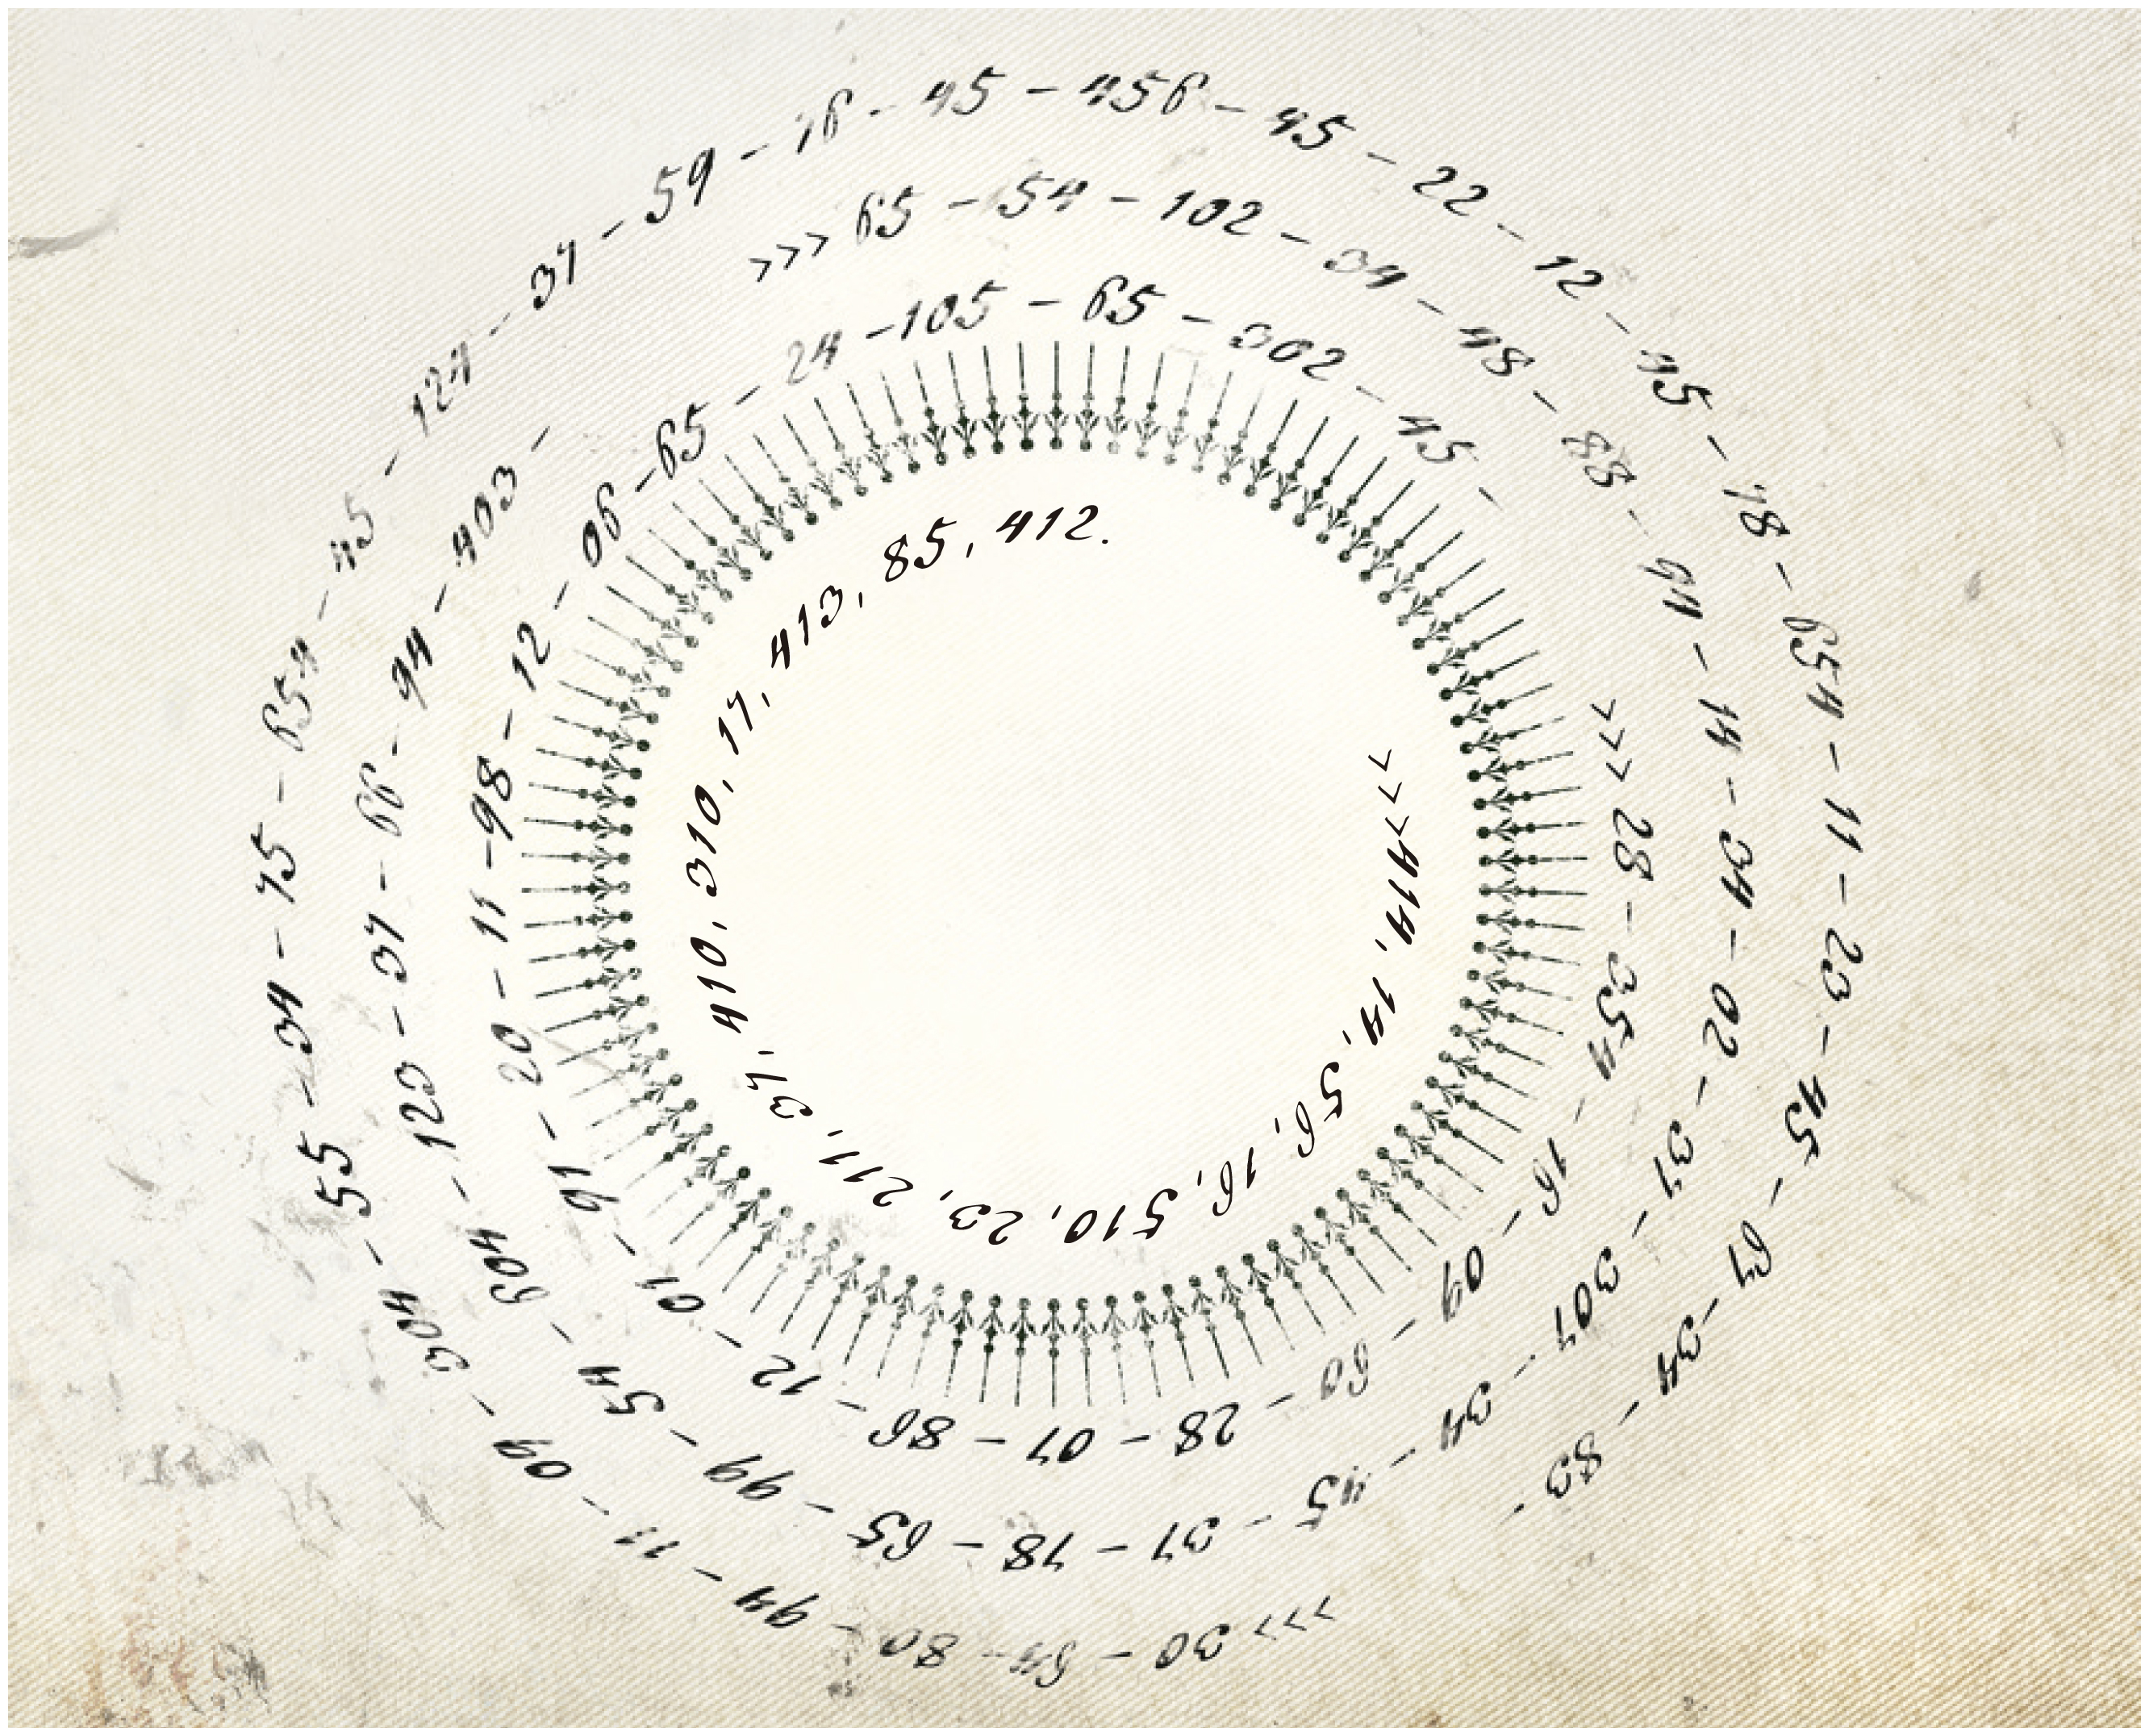 >>> 30 - 64 - 80 - 94 - 11 - 09 - 304 - 55 - 34 - 75 - 654 - 45 - 124 - 37 - 59 - 76 - 45 - 456 - 45 - 22 - 12 - 45 - 78 - 654 - 11 - 23 - 45 - 67 - 34 - 83 -
>>> 65 - 54 - 102 - 34 - 48 - 88 - 94 - 14 - 34 - 02 - 37 - 307 - 34 - 45 - 37 - 78 - 65 - 99 - 54 - 604 - 123 - 37 - 66 - 94 - 403 -
>>> 28 - 354 - 16 - 09 - 60 - 28 - 07 - 86 - 12 - 01 - 91 - 20 - 11 - 98 - 12 - 06 - 65 - 24 - 105 - 65 - 302 - 45 -
>>> 414, 14, 56, 16, 510, 23, 211, 37, 410, 310, 17, 413, 85, 412.